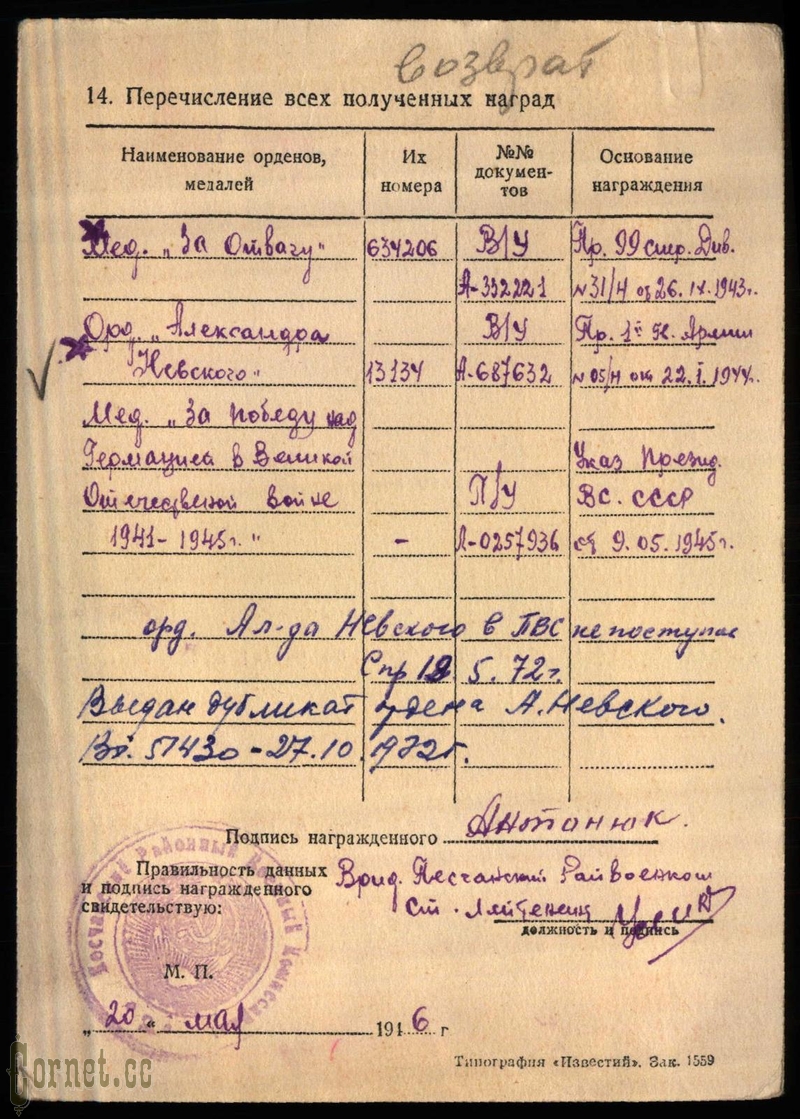 возврат
14. Перечисление всех полученных наград
Наименование орденов, медалей
Их номера
№№ докумен- тов
Основание награждения
Мед. „За Отвагу" 634206 В/У Пр. 99 стр. Див.
А-332221 №31/Н от 26. IX. 1943г.
Орд. „Александра В/У Пр. 1й Армии
Невского" 13134 А-687632 №05/Н от 22. I. 1944г.
Мед. „За победу над
Германией в Великой Указ Презид.
Отечественной войне П/У ВС. СССР
1941-1945г." - Л-0257936 от 9.05.1945г.
орд. Ал-да Невского в ПВС не поступал
Спр 5. 72г.
Выдан дубликат ордена А. Невского.
Вх. 51430-27.10.1972г.
Подпись награжденного Антонюк.
Правильность данных и подпись награжденного свидетельствую:
Врид. Песчанский Райвоенком
Ст. Лейтенант
должность и подпись
М. П.
„20" мая 1946 г
Типография «Известий». Зак. 1559
Cornet.cc